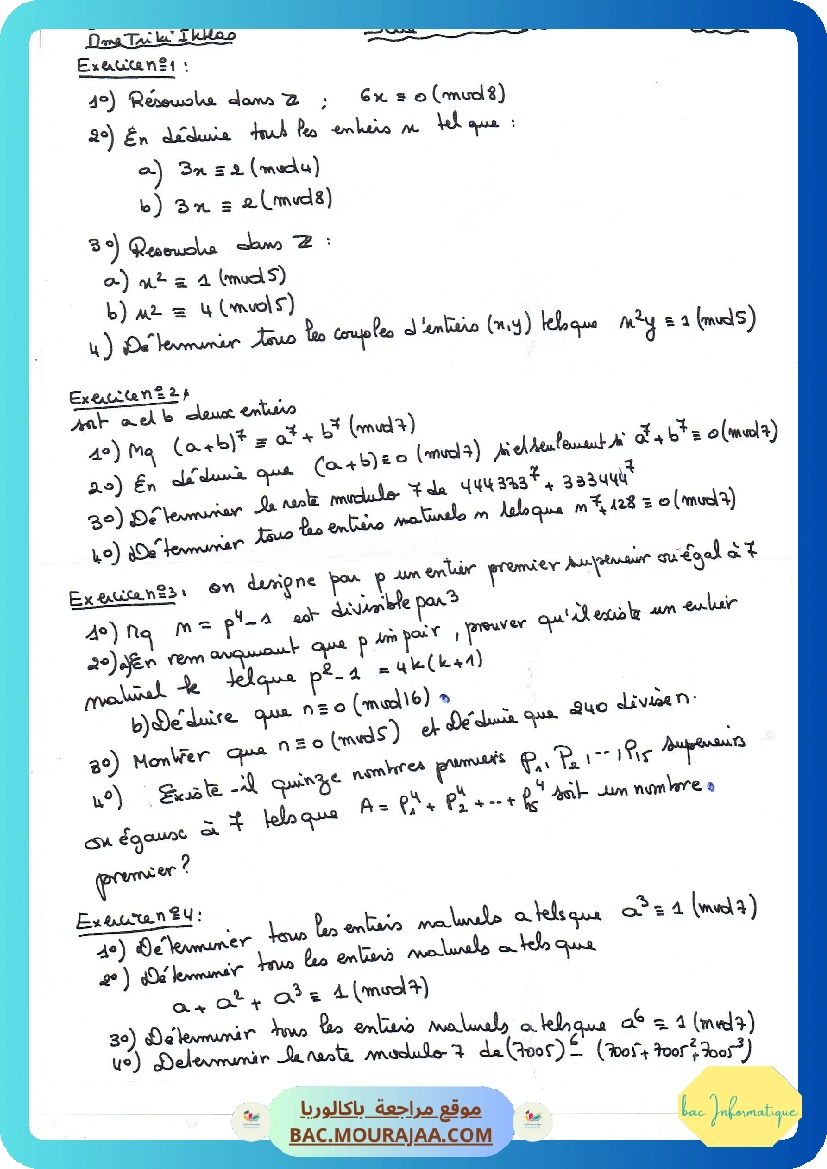 Dme Triki Ikhlas
Exercice n°1 :
1°) Résoudre dans ℤ ; 6x ≡ 0 (mod 8)
2°) En déduire tous les entiers x tel que :
a) 3x ≡ 2 (mod 4)
b) 3x ≡ 2 (mod 8)
3°) Resoudre dans ℤ :
a) x² ≡ 1 (mod 5)
b) x² ≡ 4 (mod 5)
4) Déterminer tous les couples d'entiers (x,y) tels que x²y ≡ 1 (mod 5)
Exercice n°2,
soit a et b deux entiers
1°) Mq (a+b)⁷ ≡ a⁷ + b⁷ (mod 7)
2°) En déduire que (a+b) ≡ 0 (mod 7) si et seulement si a⁷ + b⁷ ≡ 0 (mod 7)
3°) Déterminer le reste modulo 7 de 444333⁷ + 333444⁷
4°) Déterminer tous les entiers naturels n tels que n⁷ + 128 ≡ 0 (mod 7)
Exercice n°3, on designe par p un entier premier supérieur ou égal à 7
1°) Mq n = p⁴ - 1 est divisible par 3
2°) a) En remarquant que p impair, prouver qu'il existe un entier
naturel k tel que p² - 1 = 4k(k+1)
b) Déduire que n ≡ 0 (mod 16)
3°) Montrer que n ≡ 0 (mod 5) et Déduire que 240 divise n.
4°) Existe-il quinze nombres premiers P₁, P₂, ..., P₁₅ superieurs
ou égaux à 7 tels que A = P₁⁴ + P₂⁴ + ... + P₁₅⁴ soit un nombre
premier ?
Exercice n°4 :
1°) Déterminer tous les entiers naturels a tels que a³ ≡ 1 (mod 7)
2°) Déterminer tous les entiers naturels a tels que
a + a² + a³ ≡ 1 (mod 7)
3°) Déterminer tous les entiers naturels a tels que a⁶ ≡ 1 (mod 7)
4°) Determiner le reste modulo 7 de (7005)⁶ - (7005 + 7005² + 7005³)
bac Informatique
موقع مراجعة باكالوريا
BAC.MOURAJAA.COM